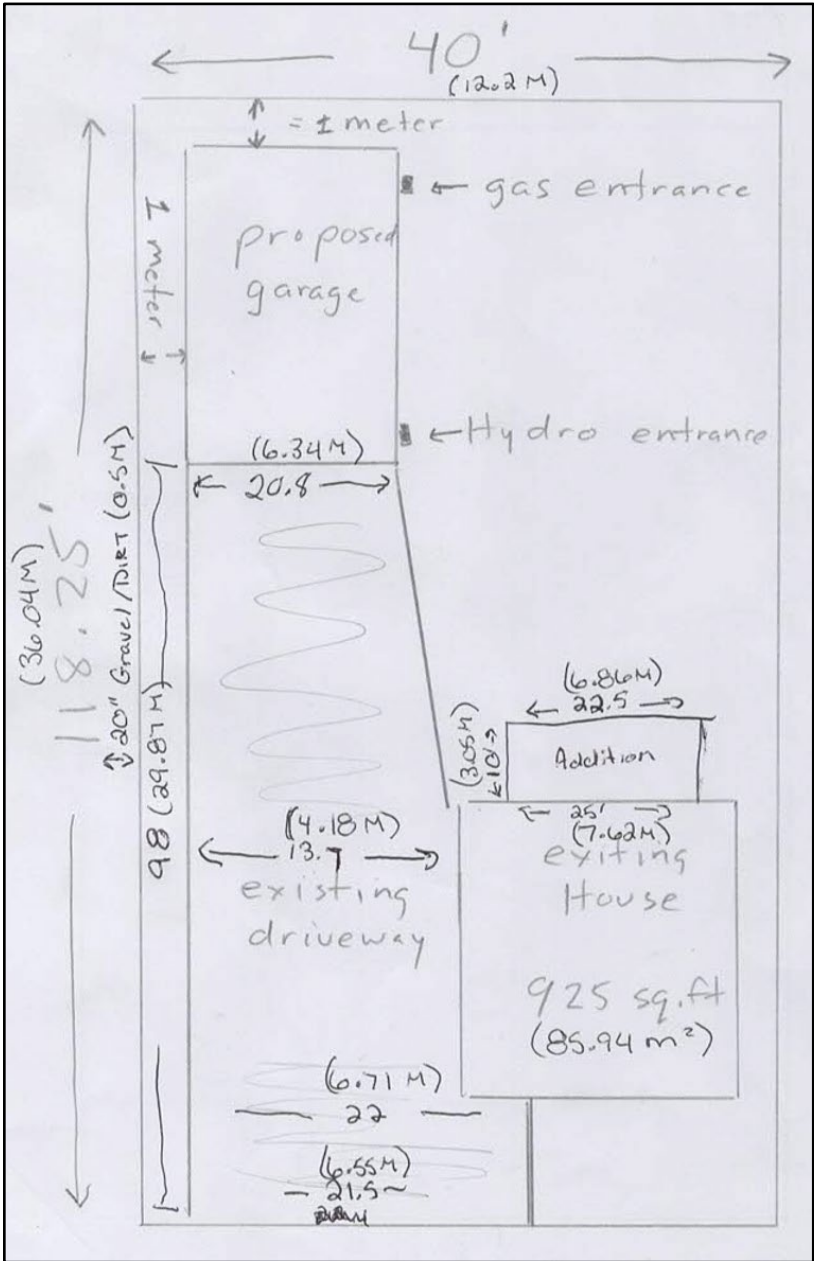 40'
(12.2 M)
= 1 meter
← gas entrance
proposed
garage
1 meter
← Hydro entrance
(6.34 M)
20.8
(36.04 M)
118.25'
20" Gravel/DIRT (0.5M)
98 (29.87 M)
(6.86M)
22.5
(3.05M)
10'
Addition
25'
(7.62M)
exiting
House
(4.18 M)
13.7
existing
driveway
925 sq.ft
(85.94 m²)
(6.71 M)
22
(6.55M)
21.5